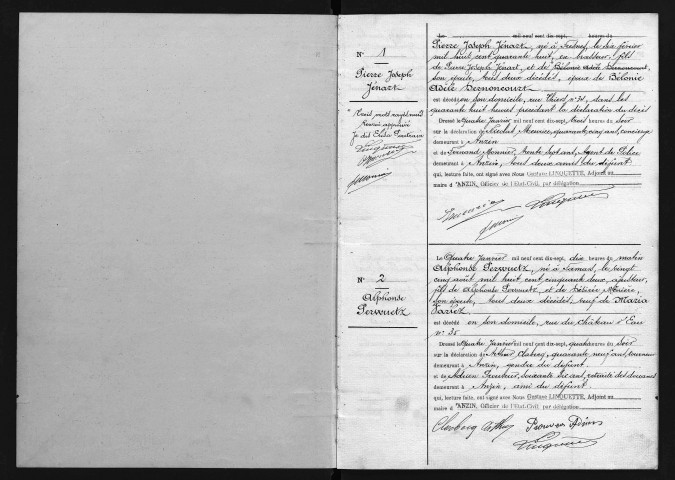 N° 1
Pierre Joseph
Jénart
mil neuf cent dix-sept, heures du
Pierre Joseph Jénart, né à Fresnes, le dix février
mil huit cent quarante huit, ex fils
de Pierre Joseph Jénart, et de
son épouse, tous deux décédés, époux de Bélonie
Adèle Bernoncourt
est décédé en son domicile, rue Thiers n° 31, dans les
quarante huit heures précédant la déclaration du décès
Dressé le Quatre Janvier mil neuf cent dix-sept, trois heures du soir
sur la déclaration de Nicolas Meurice, quarante cinq ans, concierge
demeurant à Anzin
et de Fernand Monnier, trente sept ans, Agent de Police
demeurant à Anzin, tous deux amis du défunt
qui, lecture faite, ont signé avec Nous Gustave LINQUETTE, Adjoint au
maire d'ANZIN, Officier de l'Etat-Civil, par délégation
N° 2
Alphonse
Perwuetz
Le Quatre Janvier mil neuf cent dix-sept, dix heures du matin
Alphonse Perwuetz, né à Famars, le vingt
cinq août mil huit cent cinquante deux, ajusteur,
fils de Alphonse Perwuetz, et de Désirée Meurice,
son épouse, tous deux décédés, veuf de Maria
est décédé en son domicile, rue du Château d'Eau
n° 38
Dressé le Quatre Janvier mil neuf cent dix-sept, quatre heures du soir
sur la déclaration de Arthur quarante neuf ans, tourneur
demeurant à Anzin, gendre du défunt
et de Adrien soixante six ans, retraité des douanes
demeurant à Anzin, ami du défunt
qui, lecture faite, ont signé avec Nous Gustave LINQUETTE, Adjoint au
maire d'ANZIN, Officier de l'Etat-Civil, par délégation